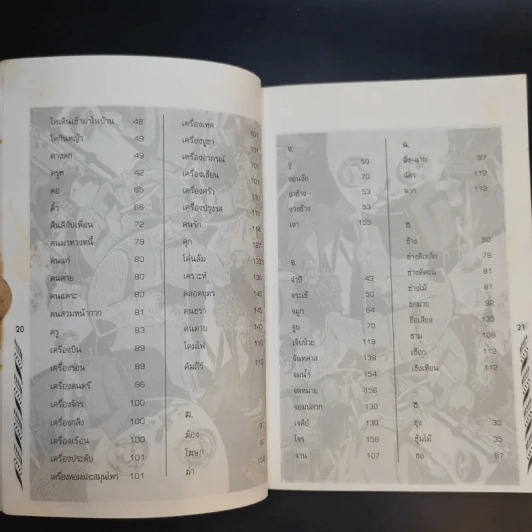 โคเดินเข้ามาในบ้าน 48
โคกินหญ้า 49
คางคก 49
ครุฑ 42
คอ 65
คิ้ว 66
คืนดีกับเพื่อน 72
คนมาทวงหนี้ 79
คนแก่ 80
คนตาย 80
คนแคระ 80
คนสวมหน้ากาก 81
ครู 83
เครื่องบิน 89
เครื่องร่อน 89
เครื่องดนตรี 96
เครื่องจักร 100
เครื่องกลึง 100
เครื่องเรือน 100
เครื่องประดับ 101
เครื่องหอมและสมุนไพร 101
20
เครื่องเทศ
เครื่องบูชา
เครื่องอาภรณ์
เครื่องเขียน
เครื่องครัว
เครื่องปรุงรส
คนรัก
คุก
โค่นล้ม
เคราะห์
คลอดบุตร
คนธรรพ์
คนคาย
โคมไฟ
คัมภีร์
ฆ.
ฆ้อง
โฆษก
ฆ่า
ง.
งู 50
งอนง้อ 70
งาช้าง 53
งวงช้าง 53
เงา 155
จ.
จำปี 43
จระเข้ 50
จมูก 64
จูบ 70
เจ็บป่วย 119
จันทคาส 139
จมน้ำ 154
จดหมาย 156
จอมปลวก 130
เจดีย์ 130
โจร 156
จาน 107
ฉ.
ฉิ่ง-ฉาบ 97
ฉัตร 112
ฉาก 112
ช.
ช้าง 50
ช่างตีเหล็ก 78
ช่างตัดผม 81
ช่างไม้ 81
ชกมวย 92
ชื่อเสียง 135
ชาม 108
เชือก 112
เชิงเทียน 112
ซ.
ซุง 35
ซุ้มไม้ 35
ซอ 97
21